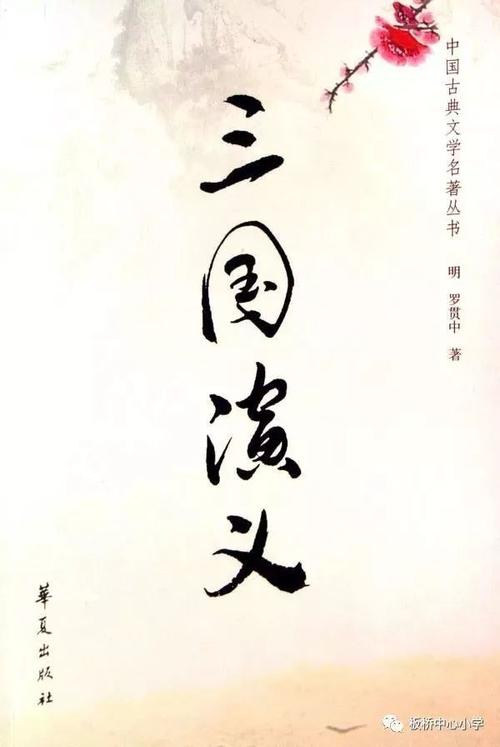 中国古典文学名著丛书
明 罗贯中 著
三国演义
華夏出版社
板桥中心小学